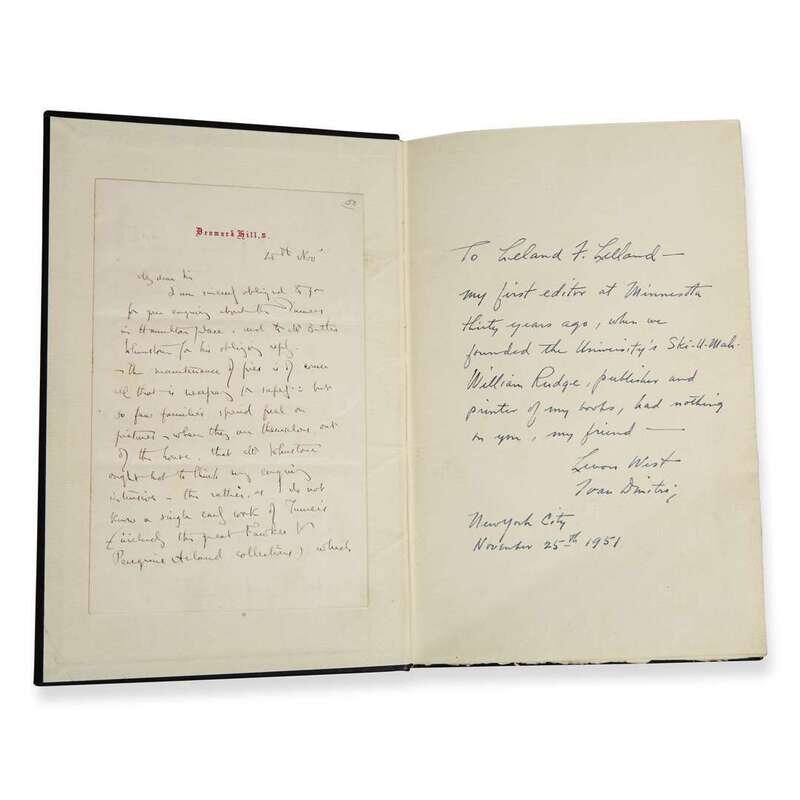 50
Denmark Hill, S.
Nov
My dear Sir
I am sincerely obliged to you
for your enquiry about the Turners
in Hamilton Place. and to Mr Butler
Johnstone for his obliging reply.
The maintenance of fires is of course
all that is necessary for safety: but
so few families spend fuel on
pictures, when they are themselves out
of the house, that Mr Johnstone
ought not to think my enquiry
intrusive - the rather, as I do not
know a single early work of Turner's
(including the great Fawkes &
collections) which
To Leland F. Leland —
my first editor at Minnesota
thirty years ago, when we
founded the University's Ski-U-Mah.
William Rudge, publisher and
printer of my works, had nothing
on you, my friend —
Levon West
Ivan Dmitri
New York City
November 25th 1951